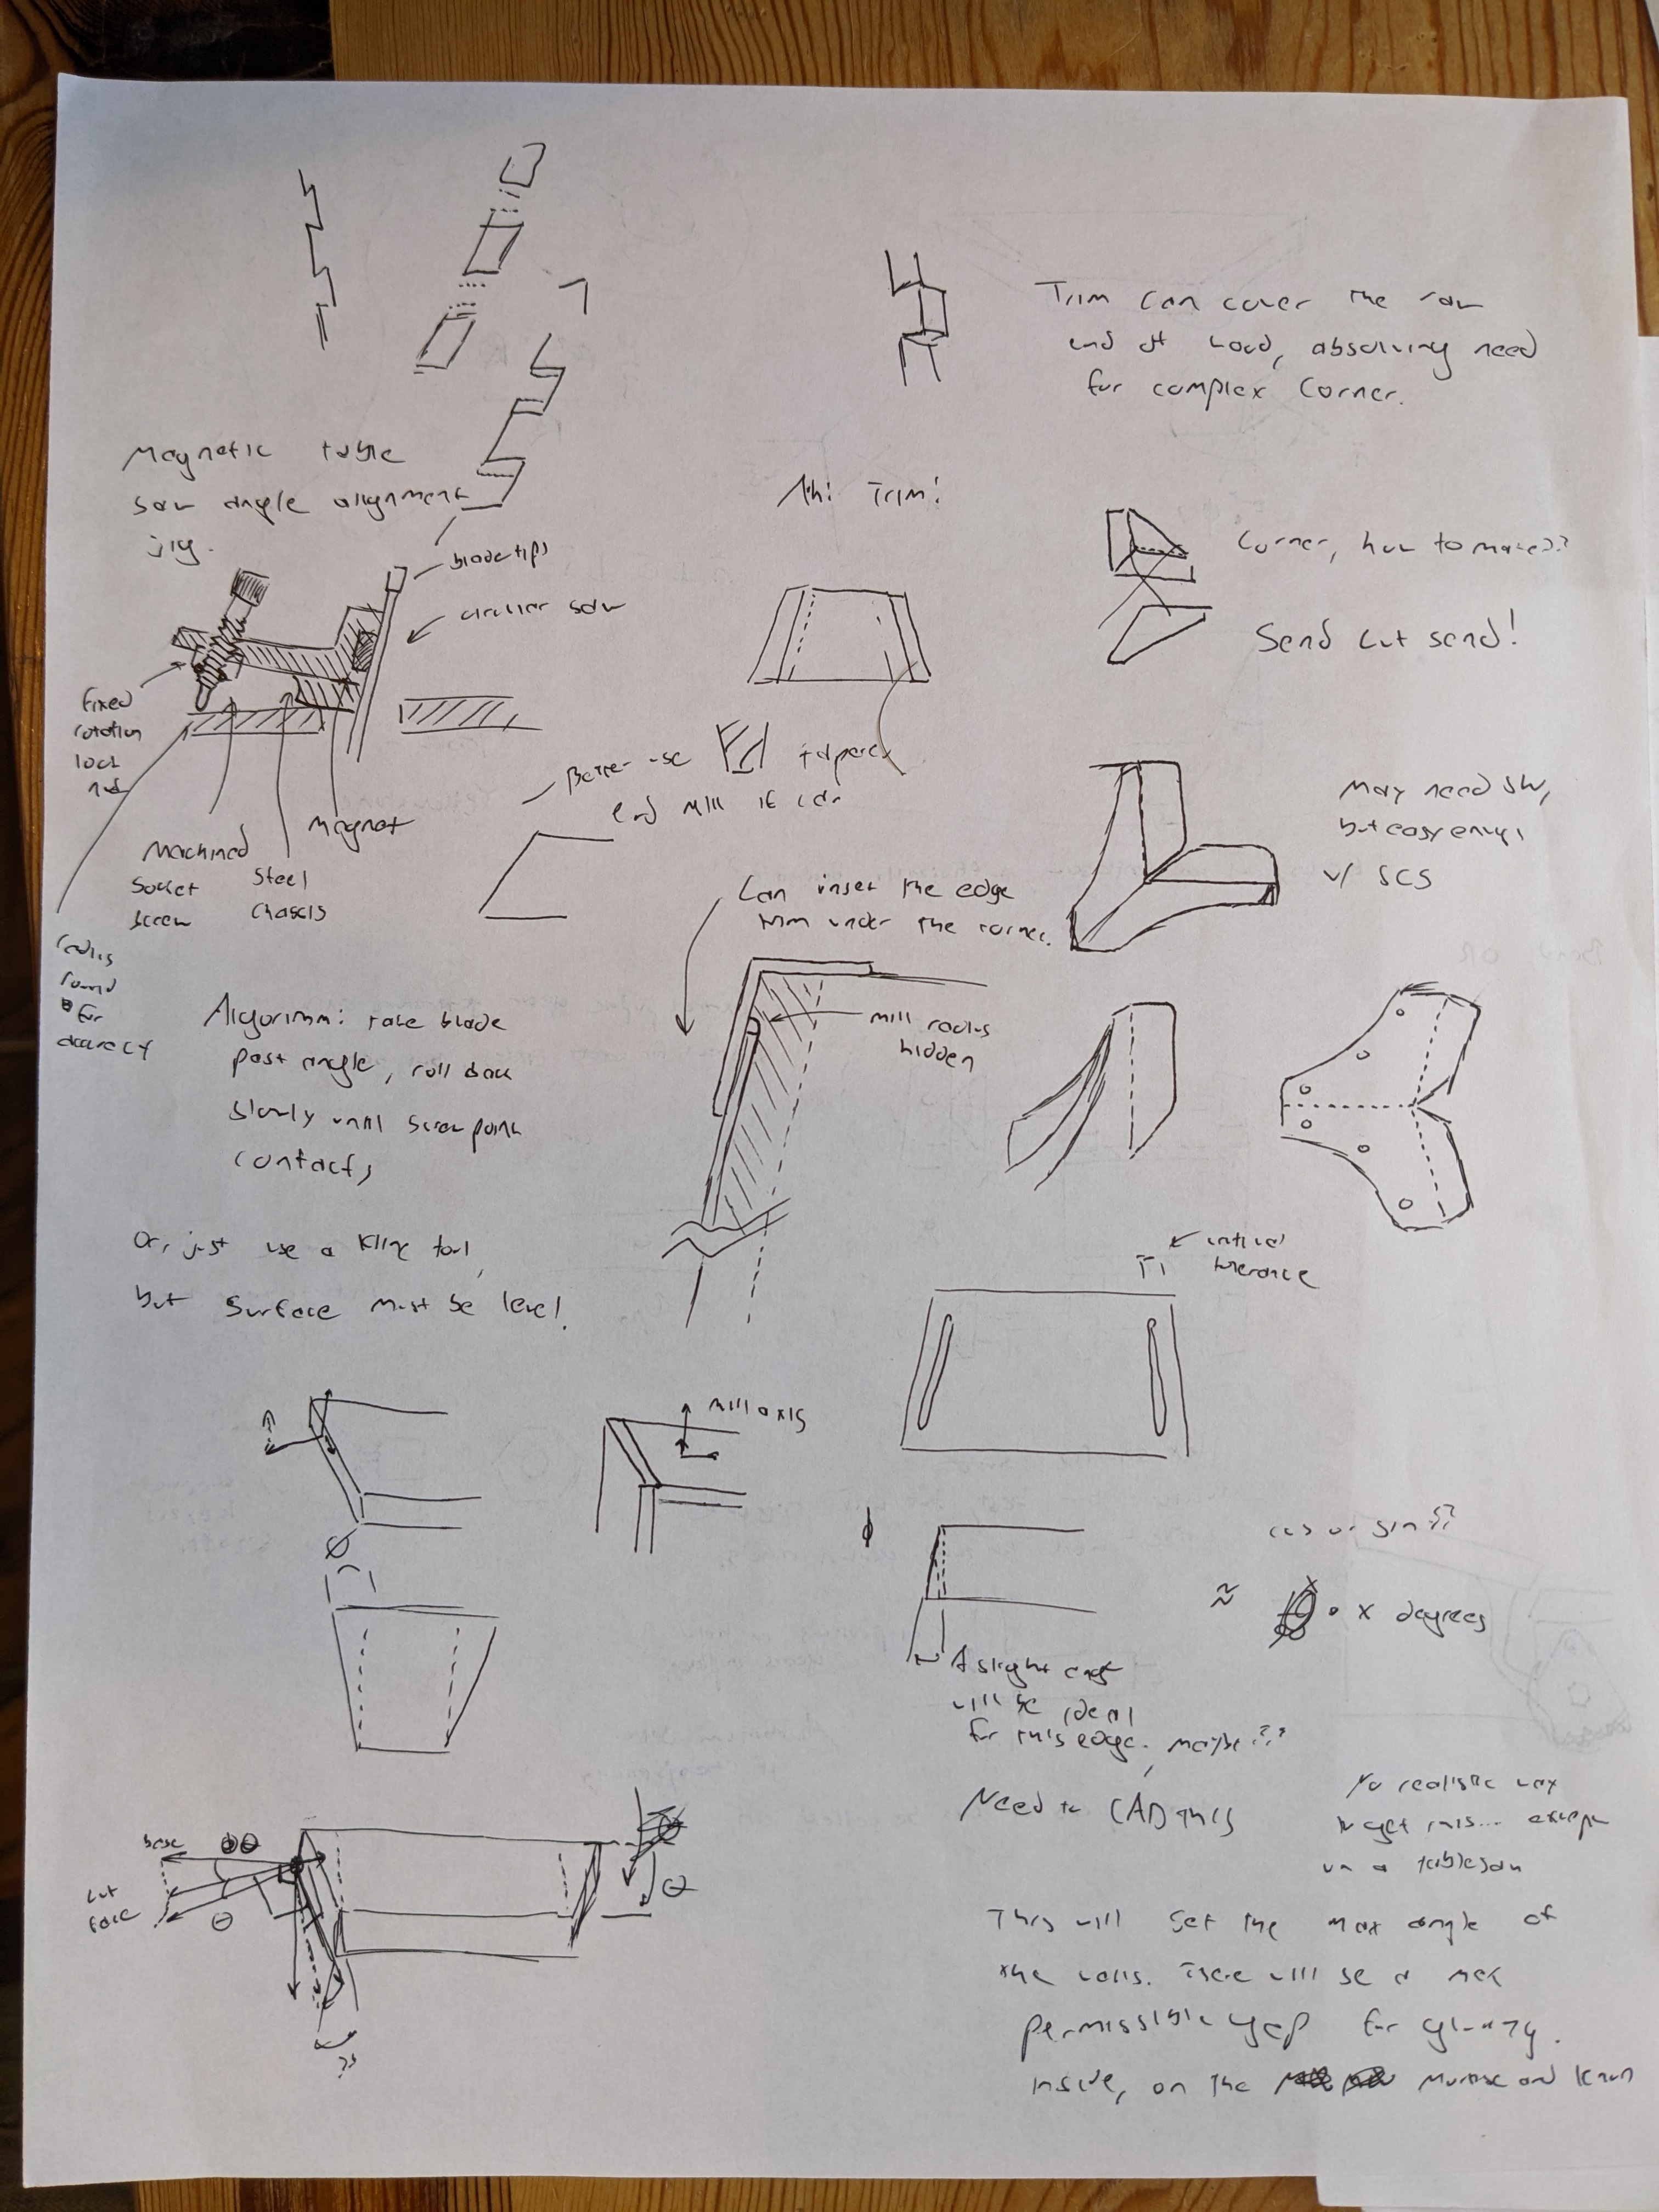 Trim can cover the raw
end of wood, absolving need
for complex corner.
Magnetic table
saw angle alignment
jig.
Ah! Trim!
blade tips
circular saw
Corner, how to make??
Send cut send!
Fixed
rotation
lock
nut
Machined
socket
screw
Steel
chassis
magnet
radius
round
for
accuracy
Better use tapered
end mill if can
May need SW,
but easy enough
w/ SCS
Can inset the edge
trim under the corner.
mill radius
hidden
Algorithm: take blade
past angle, roll back
slowly until screw point
contacts
Or, just use a tool,
but surface must be level!
critical
tolerance
mill axis
ϕ
cos or sin??
≈ • x degrees
A slight angle
will be ideal
for this edge, maybe???
Need to CAD this
No realistic way
to get this... except
on a tablesaw
base
θ
cut
face
θ
θ
??
This will set the max angle of
the walls. There will be a max
permissible gap for glueing.
inside, on the mortise and tenon